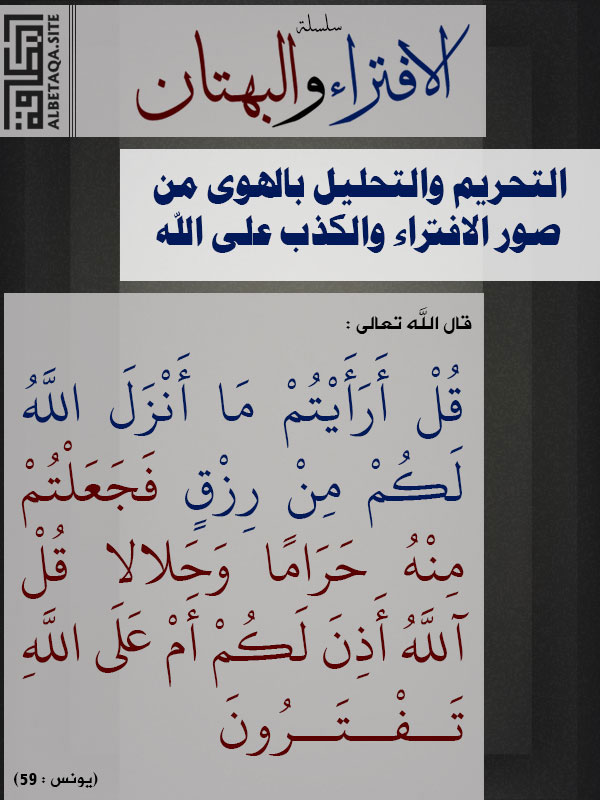 سلسلة
الافتراء والبهتان
البطاقة
ALBETAQA.SITE
التحريم والتحليل بالهوى من
صور الافتراء والكذب على الله
قال اللَّه تعالى :
قُلْ أَرَأَيْتُمْ مَا أَنْزَلَ اللَّهُ
لَكُمْ مِنْ رِزْقٍ فَجَعَلْتُمْ
مِنْهُ حَرَامًا وَحَلالا قُلْ
آللَّهُ أَذِنَ لَكُمْ أَمْ عَلَى اللَّهِ
تَـفْـتَـرُونَ
(يونس : 59)